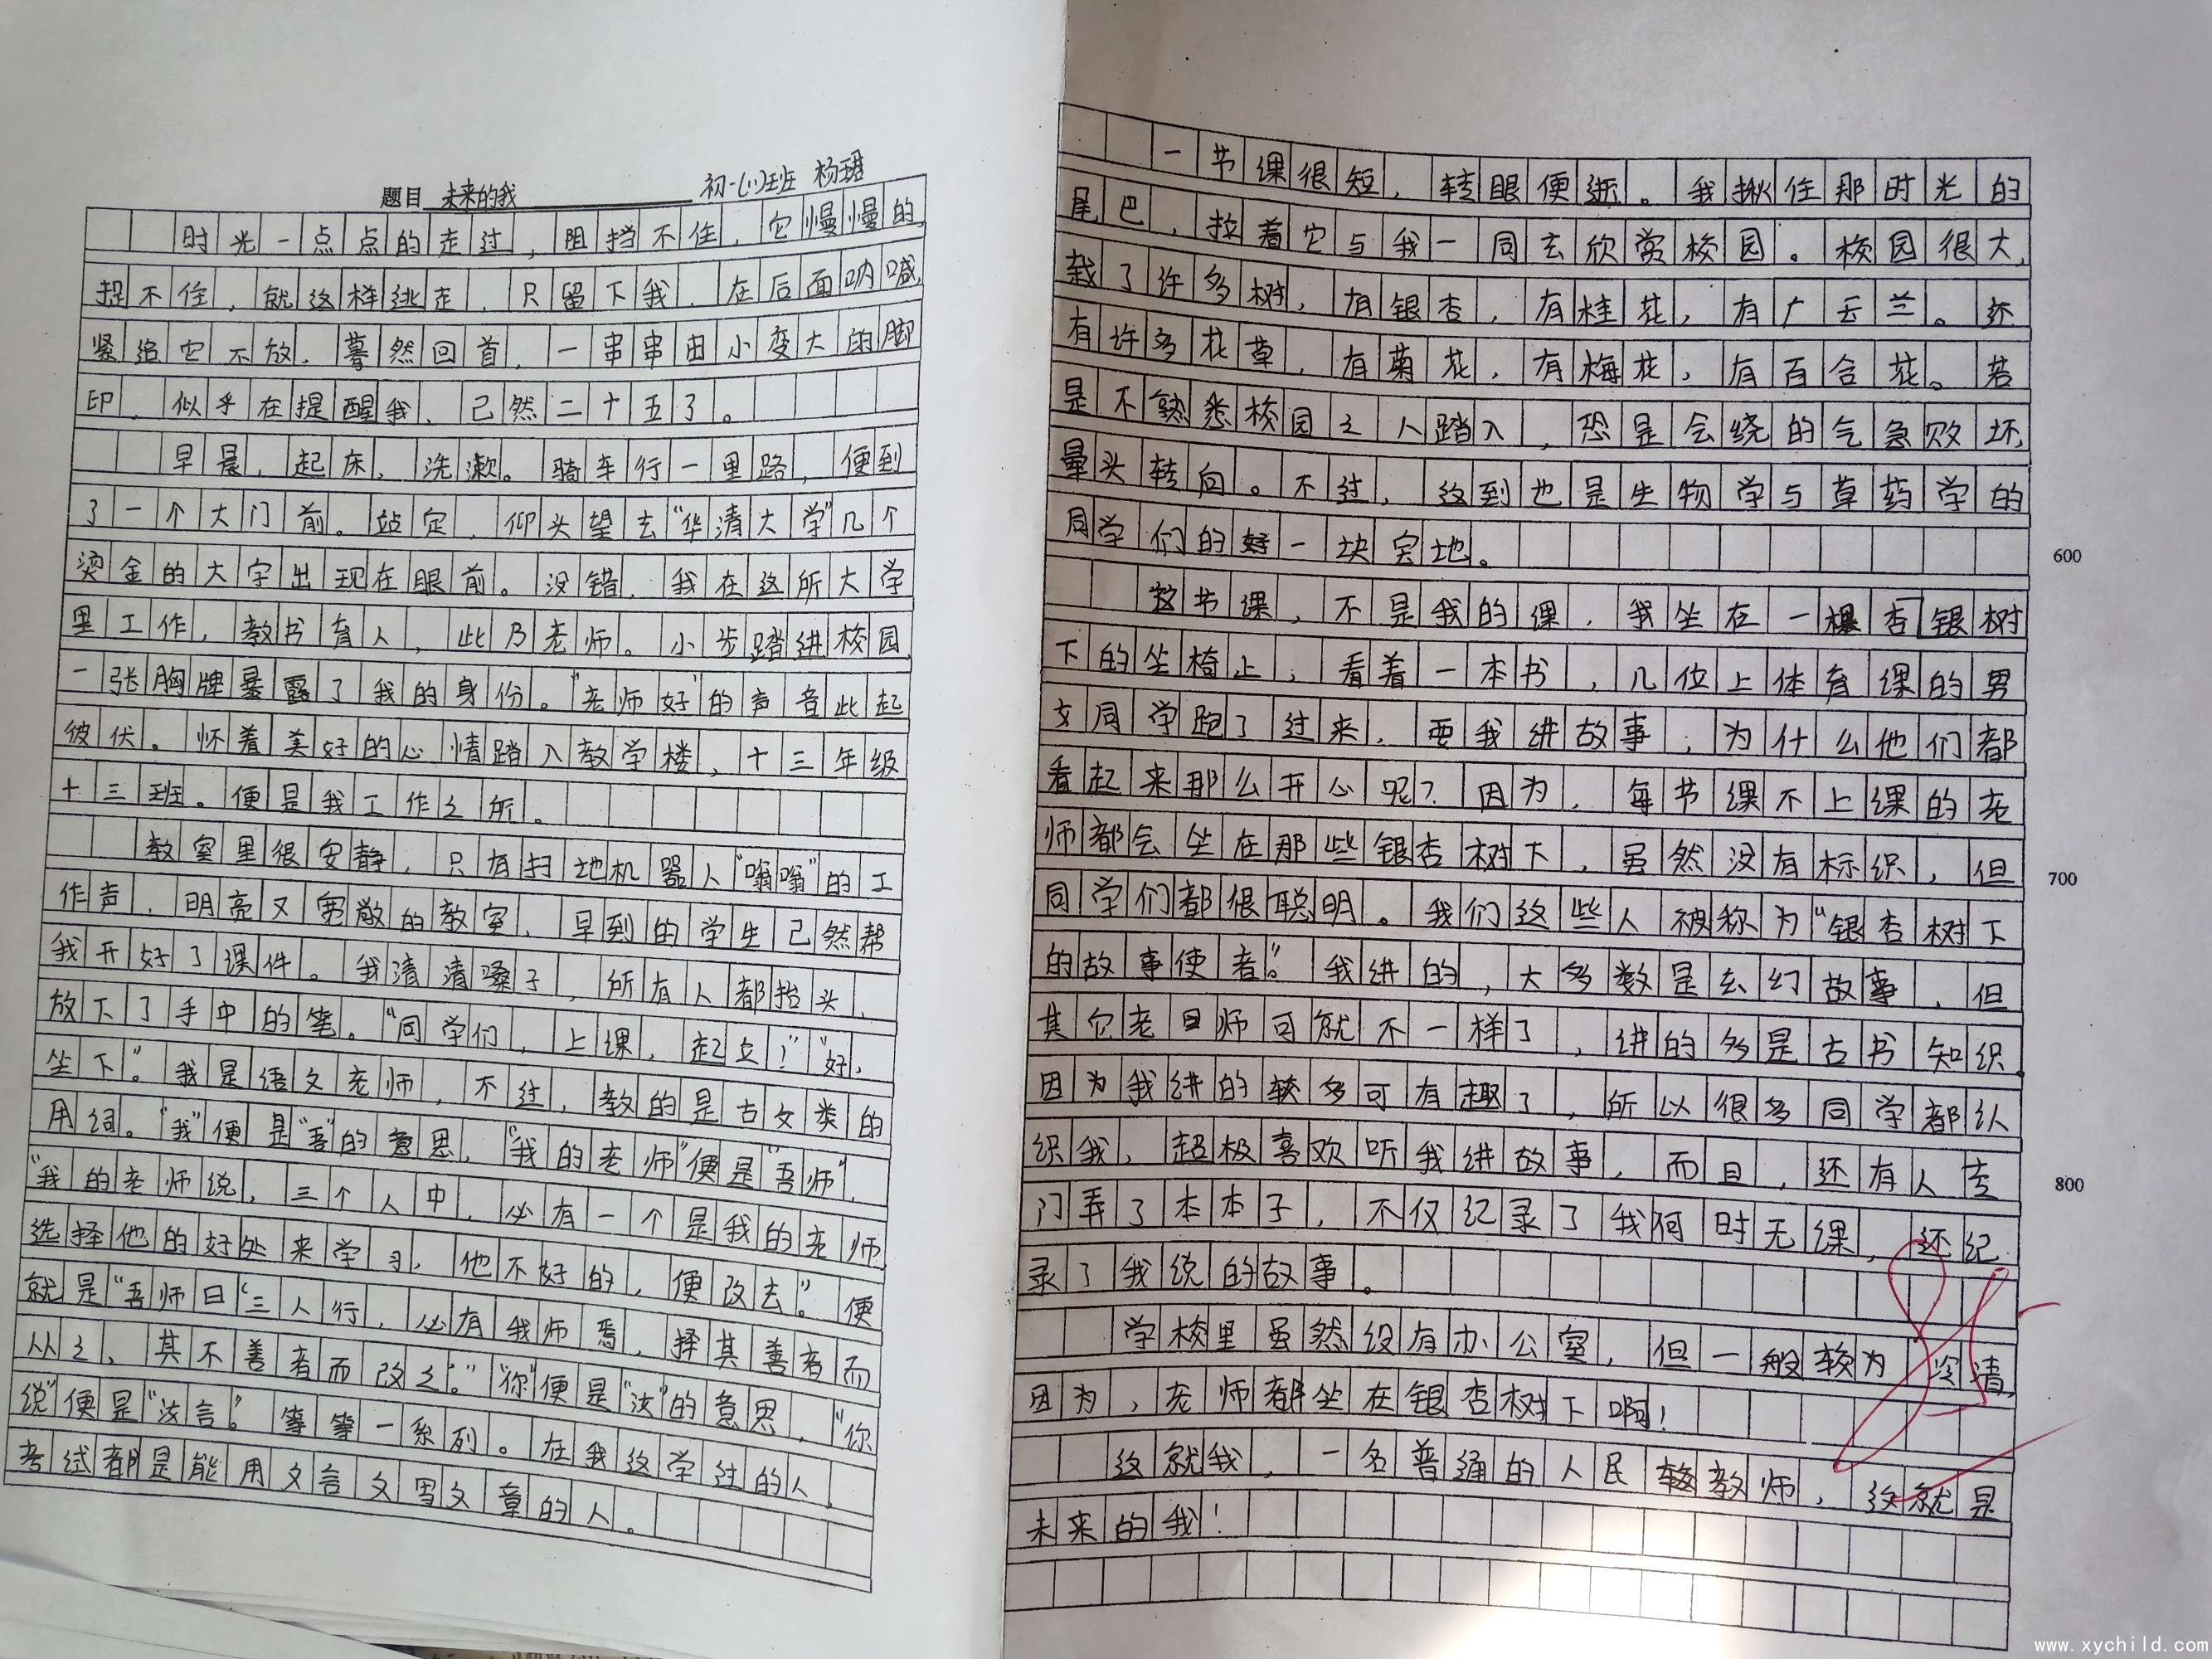 题目 未来的我 初一(1)班 杨
时光一点点的走过，阻挡不住，它慢慢的，
捉不住，就这样逃走，只留下我，在后面呐喊，
紧追它不放，蓦然回首，一串串由小变大的脚
印，似乎在提醒我，已然二十五了。
早晨，起床，洗漱。骑车行一里路，便到
了一个大门前。站定，仰头望去“华清大学”几个
烫金的大字出现在眼前。没错，我在这所大学
里工作，教书育人，此乃老师。小步踏进校园，
一张胸牌暴露了我的身份。“老师好”的声音此起
彼伏。怀着美好的心情踏入教学楼，十三年级
十三班。便是我工作之所。
教室里很安静，只有扫地机器人“嗡嗡”的工
作声，明亮又宽敞的教室，早到的学生已然帮
我开好了课件。我清清嗓子，所有人都抬头，
放下了手中的笔。“同学们，上课，起立！”“好，
坐下”。我是语文老师，不过，教的是古文类的
用词。“我”便是“吾”的意思，“我的老师”便是“吾师”，
“我的老师说，三个人中，必有一个是我的老师
选择他的好处来学习，他不好的，便改去”。便
就是“吾师曰‘三人行，必有我师焉，择其善者而
从之，其不善者而改之’。”“你”便是“汝”的意思，“你
说”便是“汝言”。等等一系列。在我这学过的人，
考试都是能用文言文写文章的人。
一节课很短，转眼便逝。我揪住那时光的
尾巴，拉着它与我一同去欣赏校园。校园很大，
栽了许多树，有银杏，有桂花，有广玉兰。还
有许多花草，有菊花，有梅花，有百合花。若
是不熟悉校园之人踏入，恐是会绕的气急败坏，
晕头转向。不过，这到也是生物学与草药学的
同学们的好一块宝地。
600
这节课，不是我的课，我坐在一棵杏银树
下的坐椅上，看着一本书，几位上体育课的男
女同学跑了过来，要我讲故事，为什么他们都
看起来那么开心呢？因为，每节课不上课的老
师都会坐在那些银杏树下，虽然没有标识，但
700
同学们都很聪明。我们这些人被称为“银杏树下
的故事使者”。我讲的，大多数是玄幻故事，但
其它老师可就不一样了，讲的多是古书知识。
因为我讲的较多可有趣了，所以很多同学都认
识我，超极喜欢听我讲故事，而且，还有人专
800
门弄了本本子，不仅纪录了我何时无课，还纪
录了我说的故事。
学校里虽然设有办公室，但一般较为冷清，
因为，老师都坐在银杏树下啊！
这就我，一名普通的人民教师，这就是
未来的我！
85
www.xychild.com